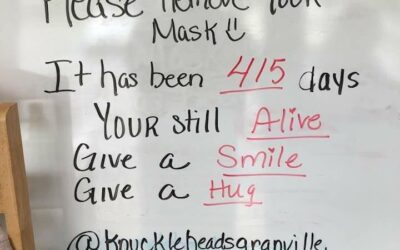 Please Remove Your
Mask
It has been 415 days
Your still Alive
Give a Smile
Give a Hug
@Knuckleheadsgranville